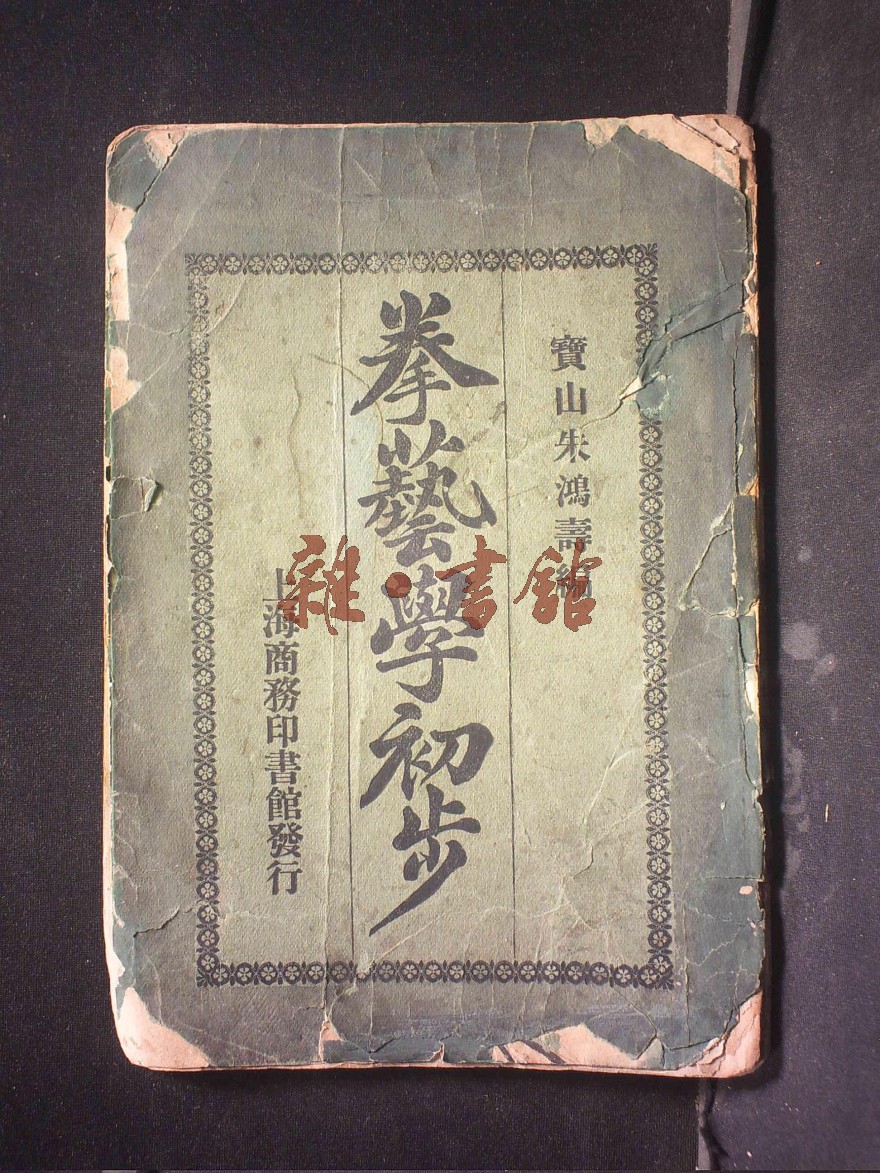 寶山朱鴻壽編
拳藝學初步
上海商務印書館發行
雜·書館